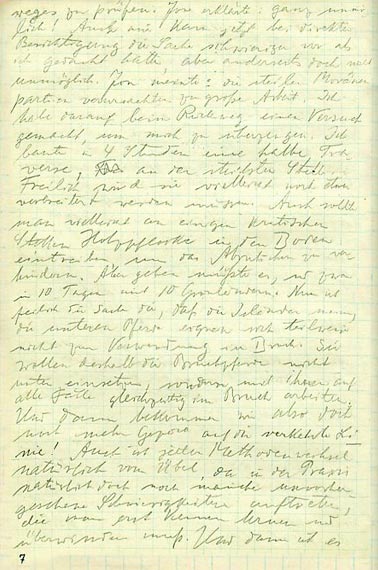 weges zu prüfen. Jon erklärt: ganz unmög-
lich! Auch mir kam jetzt bei direkter
Besichtigung die Sache schwieriger vor als
ich gedacht hatte, aber andererseits doch nicht
unmöglich. Jon meinte: die steilen Moränen
partien verursachten zu große Arbeit. Ich
habe darauf beim Rückweg einen Versuch
gemacht, um mich zu überzeugen. Ich
baute in 4 Stunden eine halbe Tra
verse, an der steilsten Stelle.
Freilich wird sie vielleicht noch etwas
verbreitert werden müssen. Auch sollte
man vielleicht an einigen kritischen
Stellen Holzpflöcke in den Boden
eintreiben um das Abrutschen zu ver
hindern. Aber gehen müßte es, und zwar
in 10 Tagen mit 10 Grönländern. Nun ist
freilich die Sache die, daß die Isländer
die unteren Pferde sich teilweise
nicht zur Verwendung im Bruch. Sie
wollen deshalb die Bruchpferde nicht
unten einsetzen, sondern mit ihnen auf
alle Fälle gleichzeitig im Bruch arbeiten.
Und dann bekommen wir also doch
noch mehr Gepäck auf die verkehrte Li
nie! Auch ist jeder Methodenwechsel
natürlich vom Übel, da in der Praxis
natürlich doch noch manche unvorher-
gesehene Schwierigkeiten auftreten,
die man erst kennen lernen und
überwinden muß. Und dann ist es
7